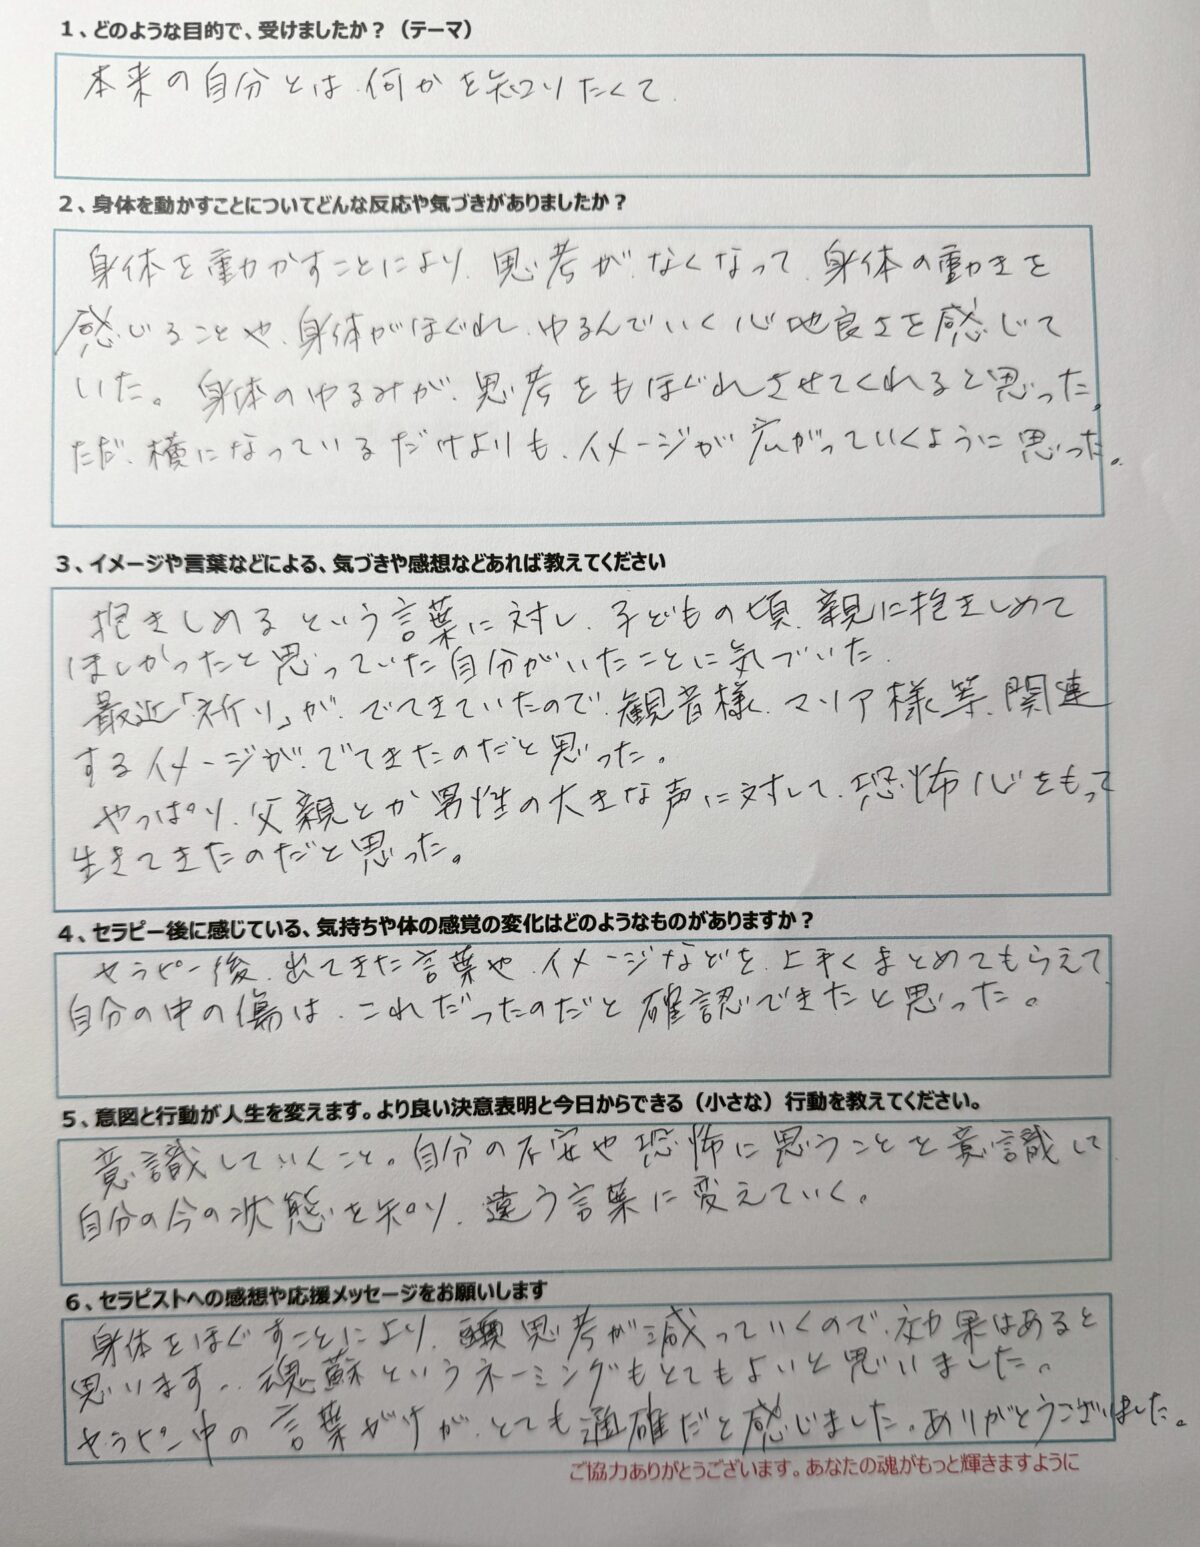 1、どのような目的で、受けましたか？（テーマ）
本来の自分とは、何かを知りたくて
2、身体を動かすことについてどんな反応や気づきがありましたか？
身体を動かすことにより、思考がなくなって、身体の動きを
感じることや、身体がほぐれ、ゆるんでいく心地良さを感じて
いた。身体のゆるみが、思考をもほぐれさせてくれると思った。
ただ、横になっているだけよりも、イメージが広がっていくように思った。
3、イメージや言葉などによる、気づきや感想などあれば教えてください
抱きしめるという言葉に対し、子どもの頃、親に抱きしめて
ほしかったと思っていた自分がいたことに気づいた。
最近「祈り」が、でてきていたので、観音様、マリア様等、関連
するイメージが、でてきたのだと思った。
やっぱり、父親とか男性の大きな声に対して、恐怖心をもって
生きてきたのだと思った。
4、セラピー後に感じている、気持ちや体の感覚の変化はどのようなものがありますか？
セラピー後、出てきた言葉や、イメージなどを、上手くまとめてもらえて、
自分の中の傷は、これだったのだと確認できたと思った。
5、意図と行動が人生を変えます。より良い決意表明と今日からできる（小さな）行動を教えてください。
意識していくこと。自分の不安や恐怖に思うことを意識して
自分の今の状態を知り、違う言葉に変えていく。
6、セラピストへの感想や応援メッセージをお願いします
身体をほぐすことにより、思考が減っていくので、効果はあると
思います。魂蘇というネーミングもとてもよいと思いました。
セラピー中の言葉がけが、とても適確だと感じました。ありがとうございました。
ご協力ありがとうございます。あなたの魂がもっと輝きますように